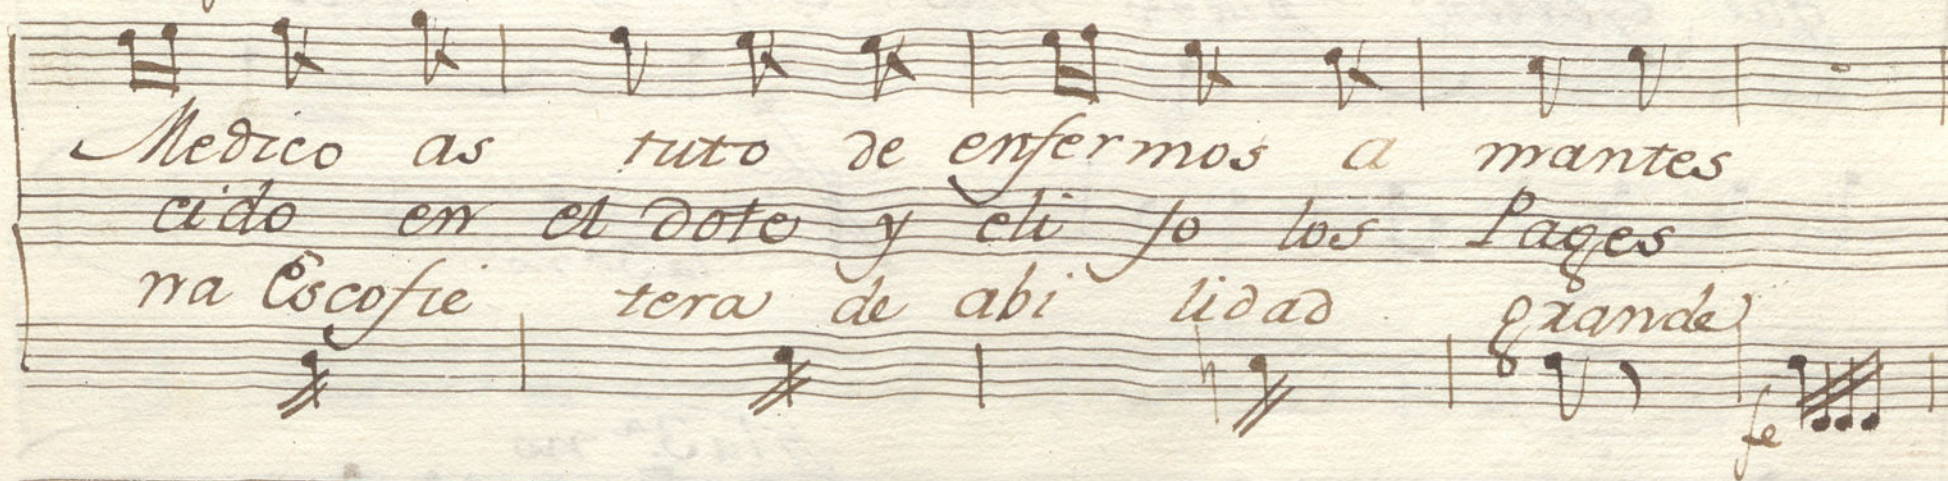 Medico as tuto de enfermos a mantes
cido en el dote y eli jo los Pages
na Escofie tera de abi lidad grande
fe